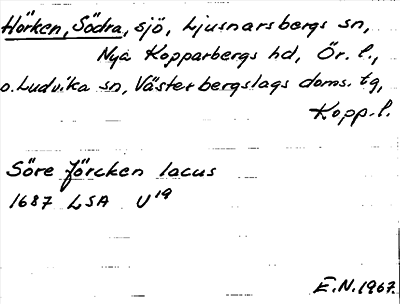 Hörken, Södra, sjö, Ljusnarsbergs sn,
Nya Kopparbergs hd, Ör. l.,
o. Ludvika sn, Västerbergslags doms. tg,
Kopp. l.
Söre Jörcken lacus
1687 LSA U19
E.N. 1967.